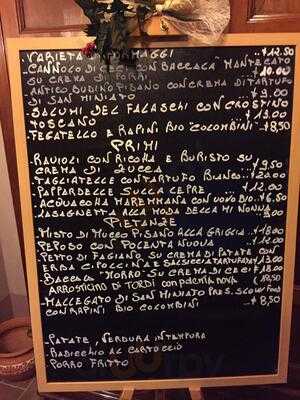 VARIETÀ DI FORMAGGI €12.50
CANNOLO DI CECI CON BACCALÀ MANTECATO
SU CREMA DI PORRI €10.00
ANTICO BUDINO PISANO CON CREMA DI TARTUFO
DI SAN MINIATO € 9.00
SALUMI DEL FALASCHI CON CROSTINO
TOSCANO €13.00
FEGATELLO E RAPINI BIO "COLOMBINI" €8,50
PRIMI
RAVIOLI CON RICOTTA E BURISTO SU
CREMA DI ZUCCA € 9,50
TAGLIATELLE CON TARTUFO BIANCO 20.00
PAPPARDELLE SULLA LEPRE €12.00
ACQUACOTTA MAREMMANA CON UOVO BIO €6.50
LASAGNETTA ALLA MODA DELLA MI NONNA
8.00
PIETANZE
MISTO DI MUCCO PISANO ALLA GRIGLIA €18.00
PEPOSO CON POLENTA NUOVA €12.00
PETTO DI FAGIANO SU CREMA DI PATATE CON
ERBA CIPOLLINA E SALSICCIA TARTUFATA €13.00
BACCALÀ "MORRO" SU CREMA DI CECI €18.00
ARROSTICINO DI TORDI CON POLENTA NUOVA €18,50
MALLEGATO DI SAN MINIATO PRES. SLOW FOOD
CON RAPINI BIO COLOMBINI €8,50
PATATE, VERDURA IN TEMPURA
RADICCHIO AL CARTOCCIO
PORRO FRITTO